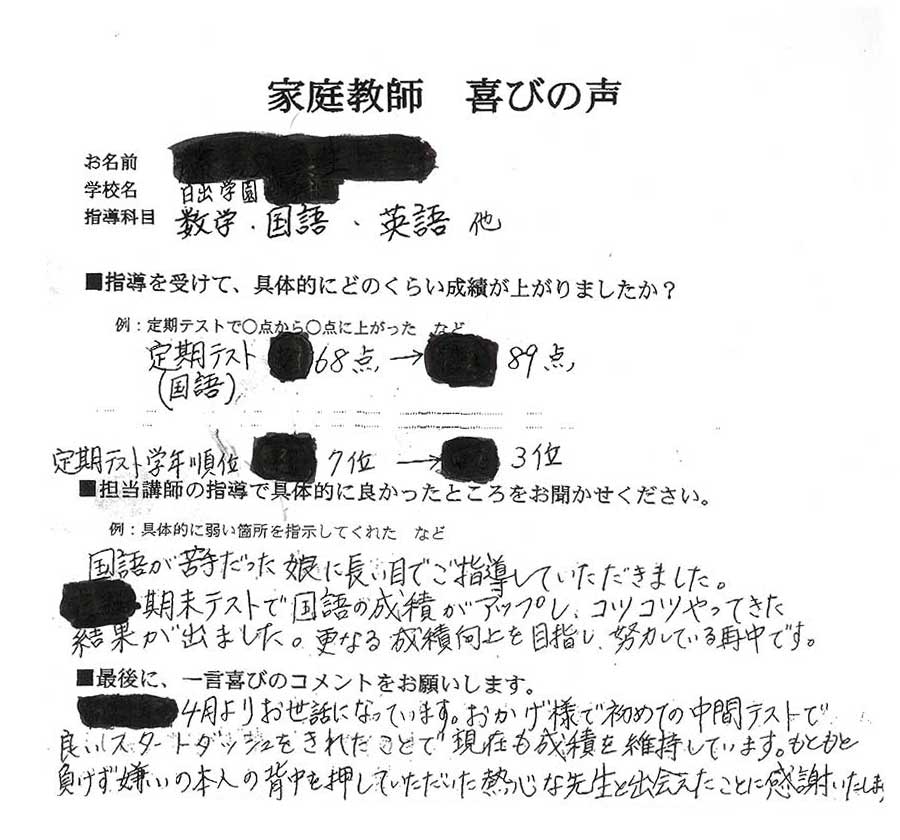 家庭教師 喜びの声
お名前
学校名 日出学園
指導科目 数学・国語、英語 他
■指導を受けて、具体的にどのくらい成績が上がりましたか？
例：定期テストで○点から○点に上がった など
定期テスト 68点 → 89点
(国語)
定期テスト学年順位 7位 → 3位
■担当講師の指導で具体的に良かったところをお聞かせください。
例：具体的に弱い箇所を指示してくれた など
国語が苦手だった娘に長い目でご指導していただきました。
期末テストで国語の成績がアップし、コツコツやってきた
結果が出ました。更なる成績向上を目指し、努力している再中です。
■最後に、一言喜びのコメントをお願いします。
4月よりお世話になっています。おかげ様で初めての中間テストで
良いスタートダッシュをきれたことで現在も成績を維持しています。もともと
負けず嫌いの本人の背中を押していただいた熱心な先生と出会えたことに感謝いたしま